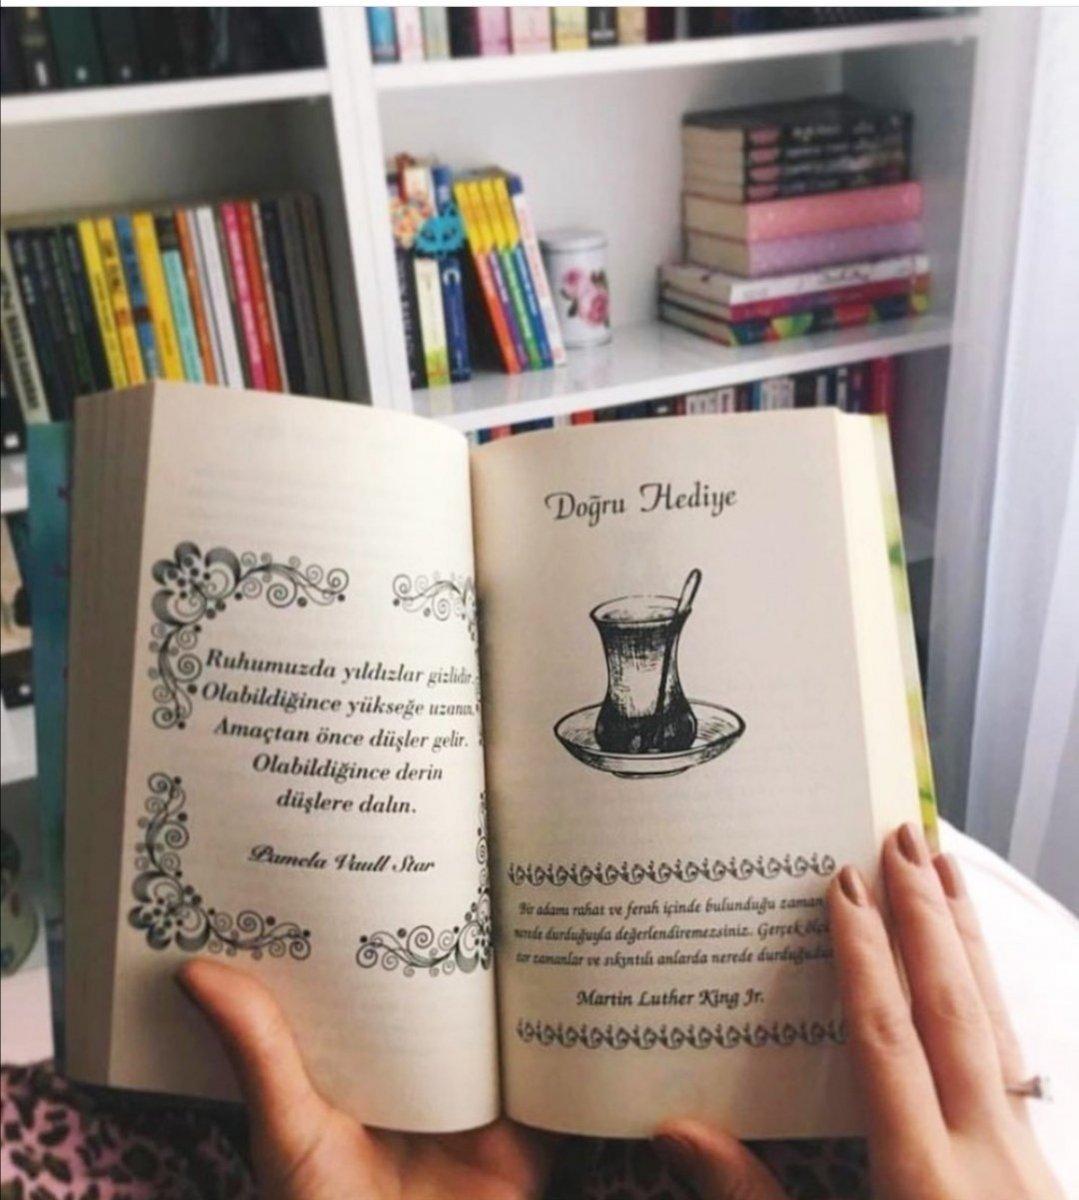 Ruhumuzda yıldızlar gizlidir.
Olabildiğince yükseğe uzanın.
Amaçtan önce düşler gelir.
Olabildiğince derin
düşlere dalın.
Pamela Vaull Star
Doğru Hediye
Bir adamı rahat ve ferah içinde bulunduğu zaman
nerede durduğuyla değerlendiremezsiniz. Gerçek
zor zamanlar ve sıkıntılı anlarda nerede durduğudur
Martin Luther King Jr.